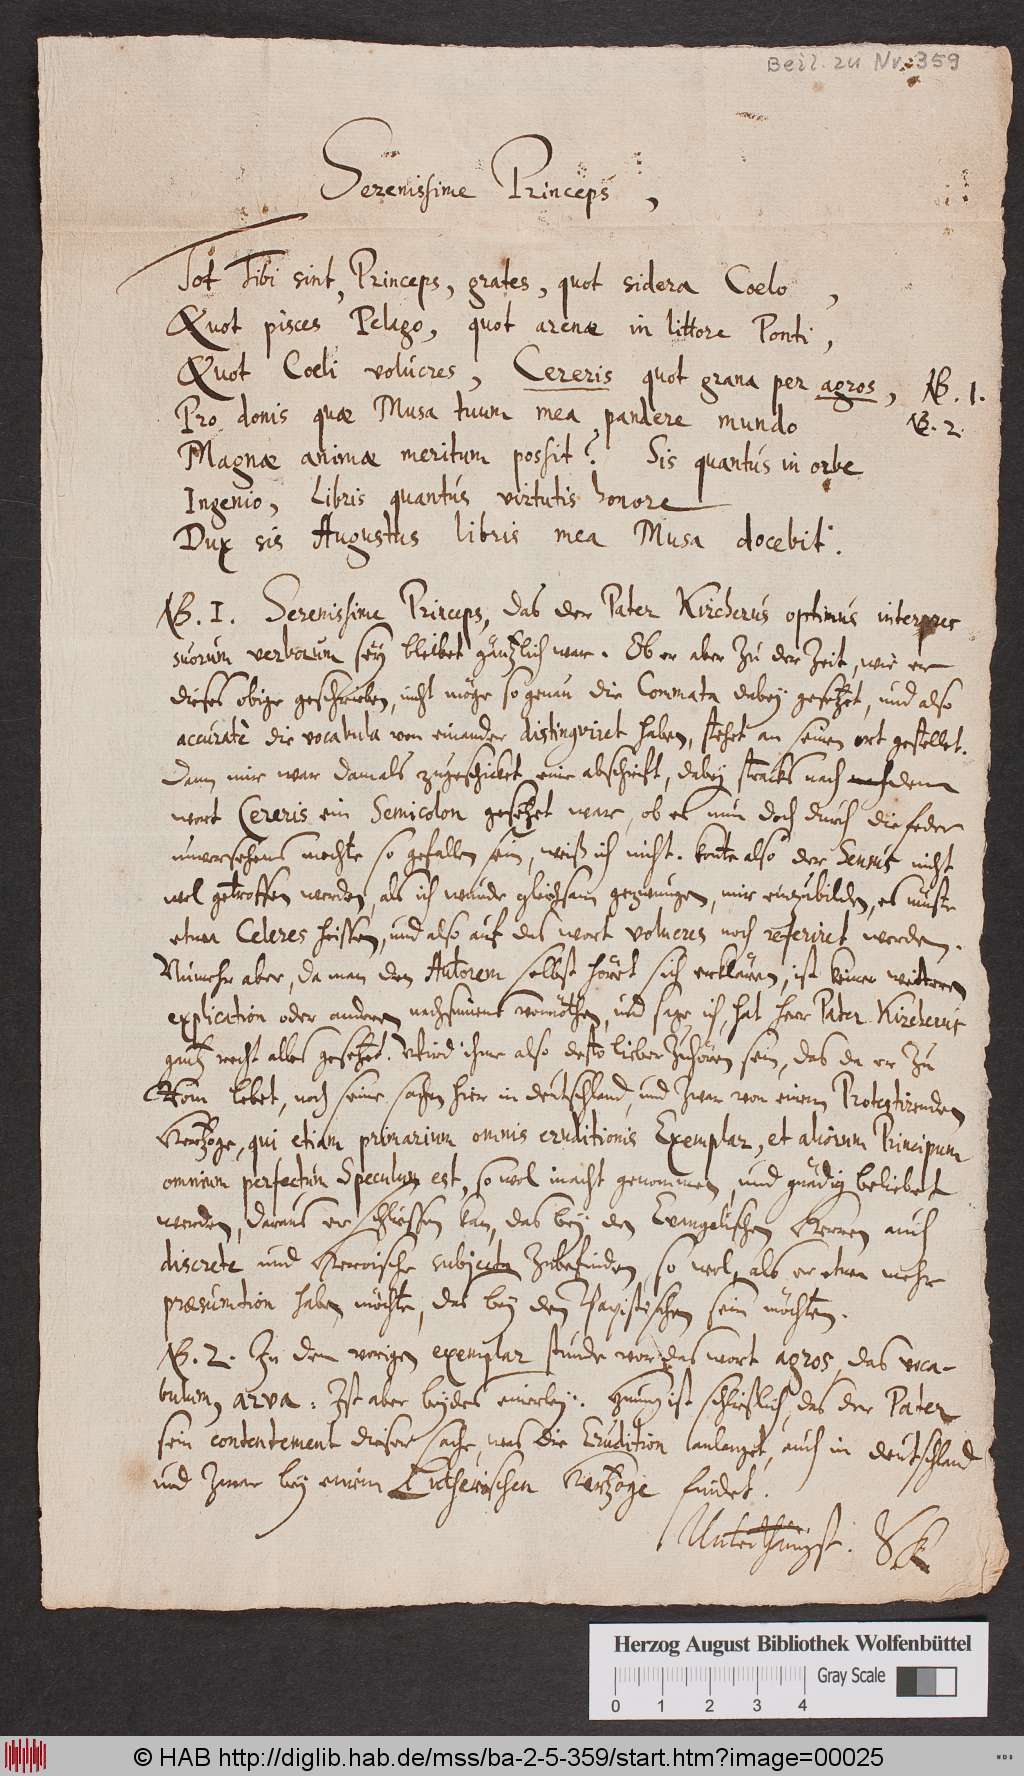 Beil. zu Nr. 359
Serenissime Princeps,
Tot Tibi sint, Princeps, grates, quot sidera Coelo,
Quot pisces Pelago, quot arenæ in littore Ponti,
Quot Coeli volucres, Cereris quot grana per agros, NB. 1.
Pro donis quæ Musa tuum mea pandere mundo NB. 2.
Magnæ animæ meritum possit? Sis quantus in orbe
Ingenio, Libris quantus virtutis honore
Dux sis Augustus libris mea Musa docebit.
NB. 1. Serenissime Princeps, das der Pater Kircherus optimus interpres
suorum verborum seÿ bleibet gäntzlich war. Ob er aber zu der Zeit, wie er
dieses obige geschrieben, nicht möge so genau die Commata dabeÿ gesetzet, und also
accuratè die vocabula von einander distingviret haben, stehet an seinen ort gestellet.
Dann mir war damals zugeschicket eine abschrifft, dabeÿ stracks nach dem
wort Cereris ein Semicolon gesetzet war, ob es nun doch durch die feder
unversehens mochte so gefallen sein, weiß ich nicht. konte also der Sensus nicht
wol getroffen werden, als ich wurde gleichsam gezwungen, mir einzubilden, es müste
etwa Celeres heissen, und also auf das wort volucres noch referiret werden.
Numehr aber, da man den Autorem selbst höret sich erklären, ist keiner weitern
explication oder andern nachsinnens vonnöthen, und sage ich, hat Herr Pater Kircherus
gantz recht alles gesetzet. Wird ihme also desto lieber zuhören sein, das da er zu
Rom lebet, noch seine sachen hier in deutschland, und zwar von einem Protestirenden
Hertzoge, qui etiam primarium omnis eruditionis Exemplar, et aliorum Principum
omnium perfectum Speculum est, so wol inacht genommen, und gnädig beliebet
werden, daraus er schliessen kan, das beÿ den Evangelischen Herren auch
discrete und Heroische subjecta zubefinden, so wol, als er etwa mehr
præsumtion haben möchte, das beÿ den Papistischen sein möchten.
NB. 2. In dem vorigen exemplar stunde vor das wort agros, das voca-
bulum, arva: Ist aber beÿdes einerleÿ. Gnung ist schließlich, das der Pater
sein contentement dieser sache, was die Erudition anlanget, auch in deutschland
und zwar beÿ einem Lutherischen Hertzoge findet.
Unterthänigst. SK
Herzog August Bibliothek Wolfenbüttel
0 1 2 3 4 Gray Scale
© HAB http://diglib.hab.de/mss/ba-2-5-359/start.htm?image=00025